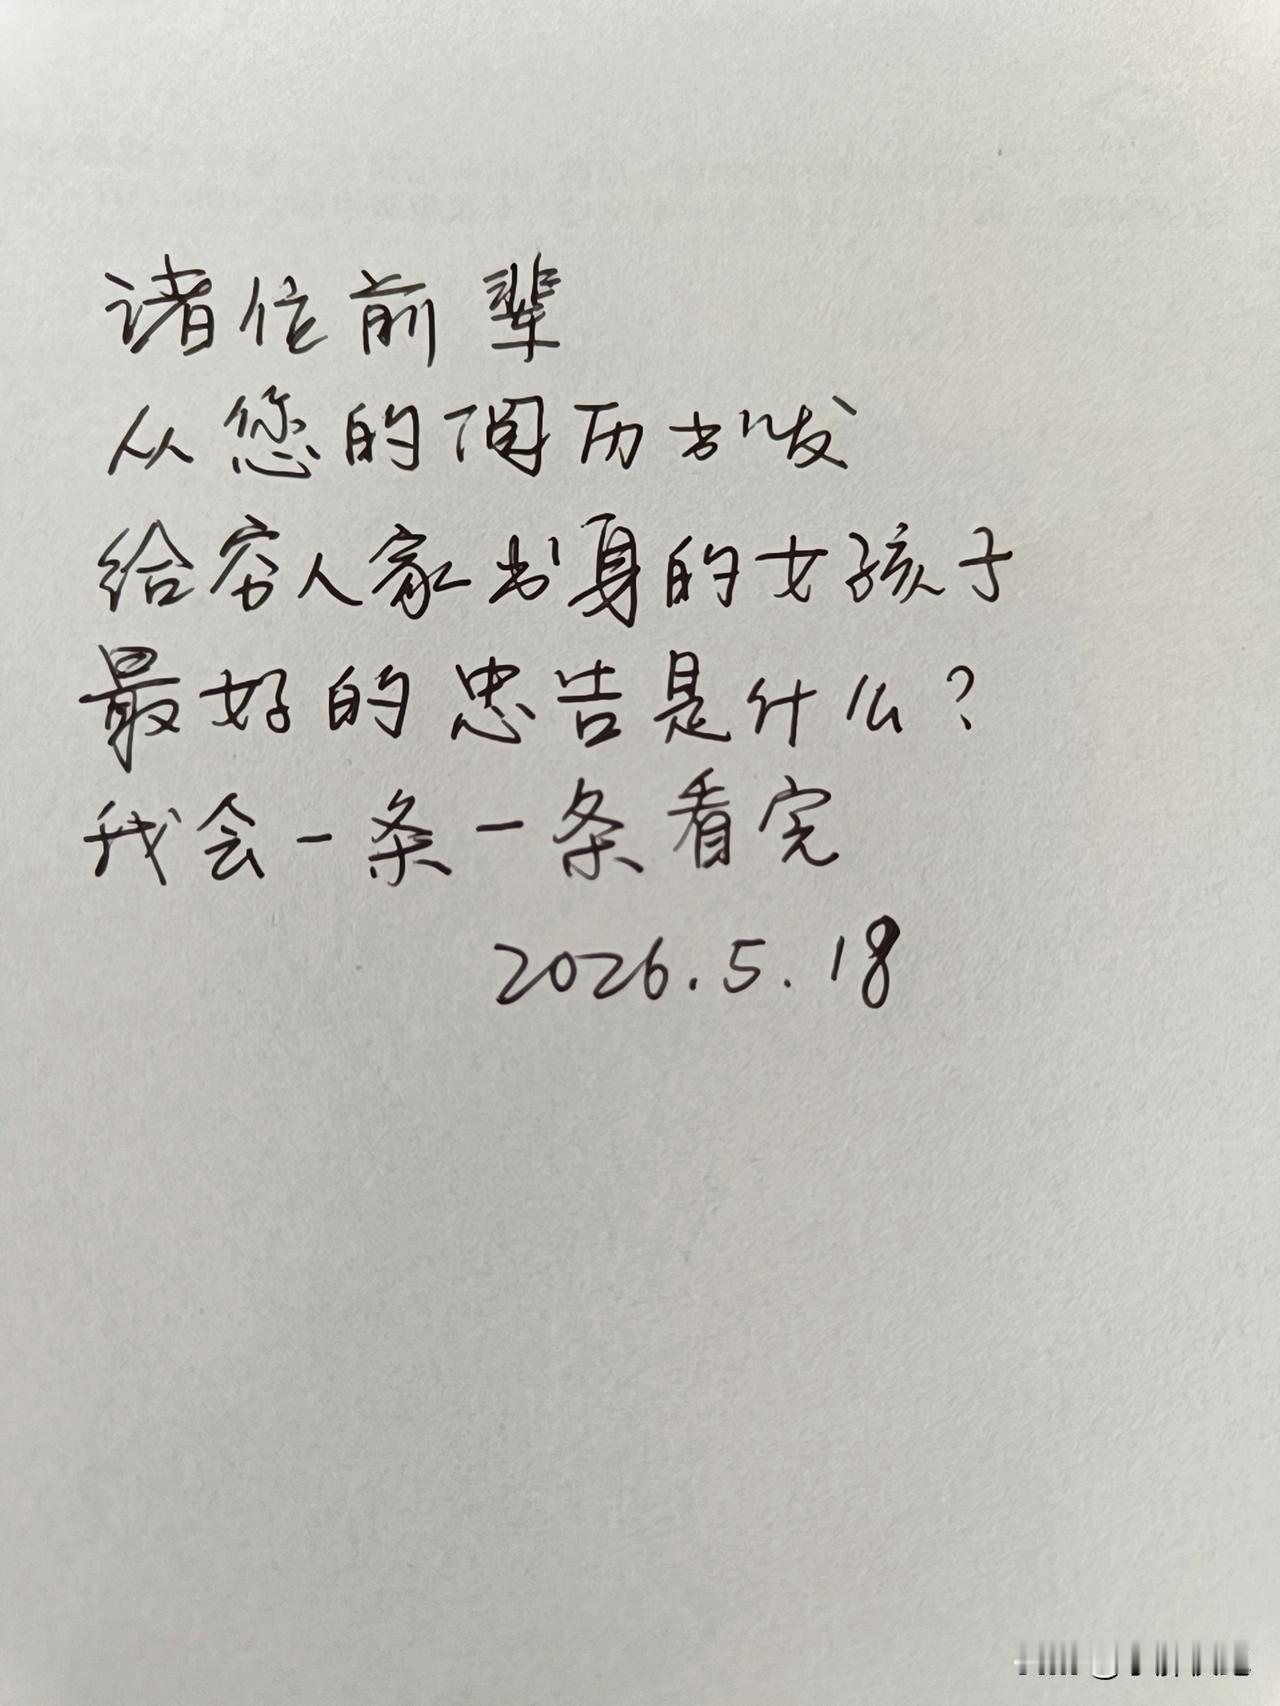 诸位前辈
从您的阅历出发
给穷人家出身的女孩子
最好的忠告是什么？
我会一条一条看完
2026.5.18